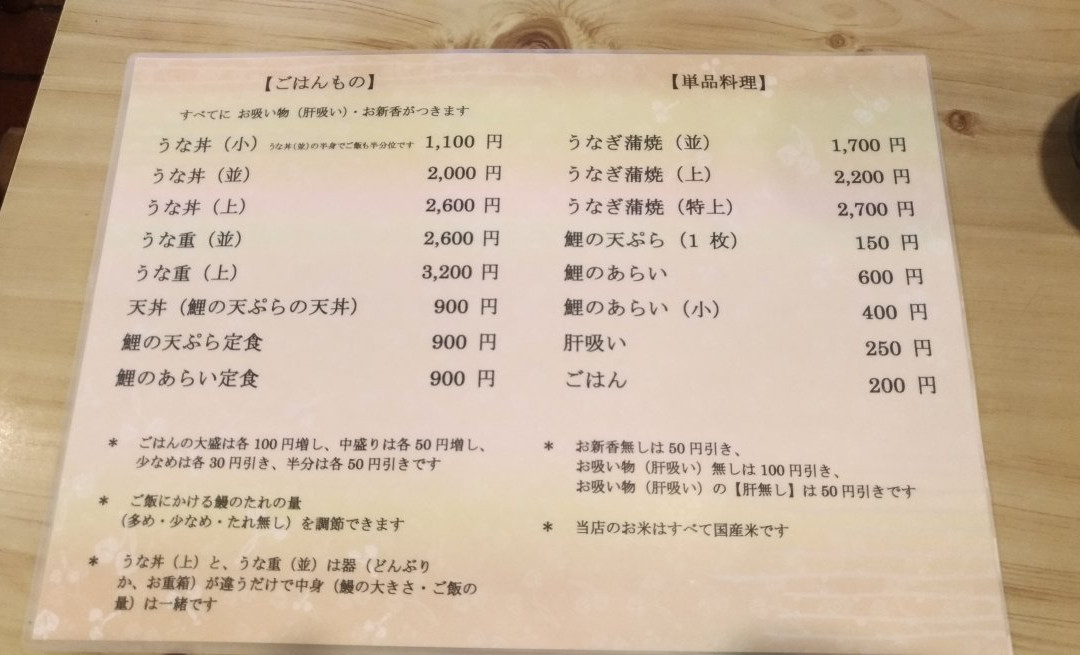 【ごはんもの】
すべてに お吸い物（肝吸い）・お新香がつきます
うな丼（小） うな丼（並）の半身でご飯も半分位です 1,100 円
うな丼（並） 2,000 円
うな丼（上） 2,600 円
うな重（並） 2,600 円
うな重（上） 3,200 円
天丼（鯉の天ぷらの天丼） 900 円
鯉の天ぷら定食 900 円
鯉のあらい定食 900 円
＊ ごはんの大盛は各 100 円増し、中盛りは各 50 円増し、
少なめは各 30 円引き、半分は各 50 円引きです
＊ ご飯にかける鰻のたれの量
（多め・少なめ・たれ無し）を調節できます
＊ うな丼（上）と、うな重（並）は器（どんぶり
か、お重箱）が違うだけで中身（鰻の大きさ・ご飯の
量）は一緒です
【単品料理】
うなぎ蒲焼（並） 1,700 円
うなぎ蒲焼（上） 2,200 円
うなぎ蒲焼（特上） 2,700 円
鯉の天ぷら（1 枚） 150 円
鯉のあらい 600 円
鯉のあらい（小） 400 円
肝吸い 250 円
ごはん 200 円
＊ お新香無しは 50 円引き、
お吸い物（肝吸い）無しは 100 円引き、
お吸い物（肝吸い）の【肝無し】は 50 円引きです
＊ 当店のお米はすべて国産米です